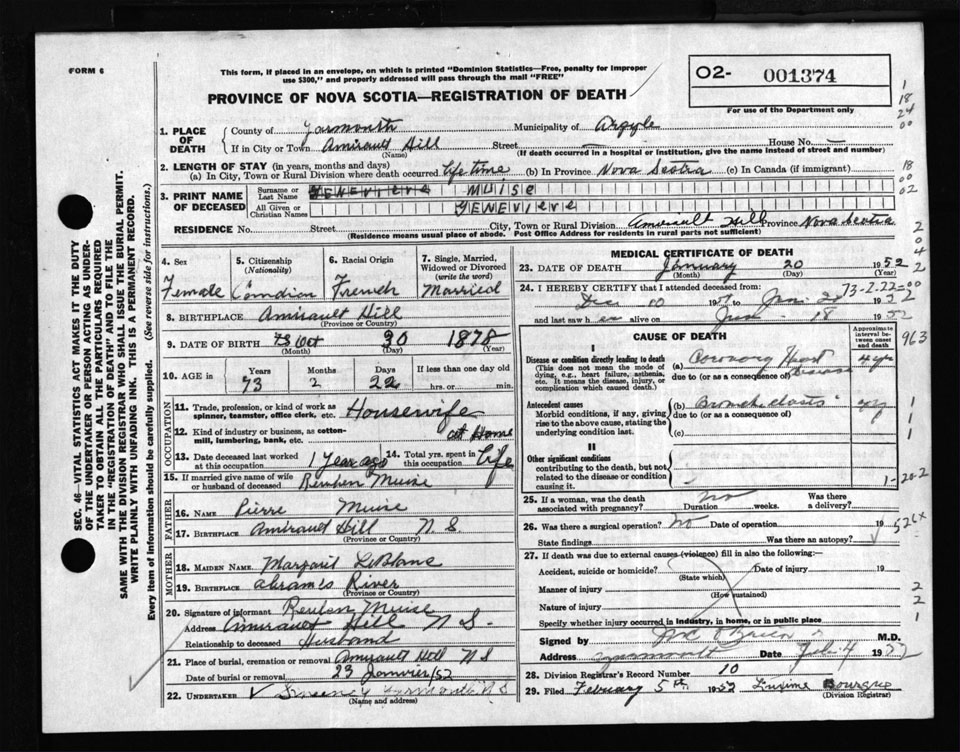 FORM 6
This form, if placed in an envelope, on which is printed "Dominion Statistics—Free, penalty for improper
use $300," and properly addressed will pass through the mail "FREE"
O2- 001374
For use of the Department only
PROVINCE OF NOVA SCOTIA—REGISTRATION OF DEATH
1. PLACE OF DEATH
County of Yarmouth Municipality of Argyle
If in City or Town Amirault Hill Street — House No. —
(Name) (If death occurred in a hospital or institution, give the name instead of street and number)
2. LENGTH OF STAY (in years, months and days)
(a) In City, Town or Rural Division where death occurred life time (b) In Province Nova Scotia (c) In Canada (if immigrant)
3. PRINT NAME OF DECEASED
Surname or Last Name GENEVIEVE MUISE
All Given or Christian Names GENEVIEVE
RESIDENCE No. Street City, Town or Rural Division Amirault Hill Province Nova Scotia
(Residence means usual place of abode. Post Office Address for residents in rural parts not sufficient)
4. Sex
Female
5. Citizenship
(Nationality)
Canadian
6. Racial Origin
French
7. Single, Married, Widowed or Divorced
(write the word)
Married
8. BIRTHPLACE Amirault Hill
(Province or Country)
9. DATE OF BIRTH Oct 30 1878
(Month) (Day) (Year)
10. AGE in Years Months Days If less than one day
73 2 22 hrs. or min.
OCCUPATION
11. Trade, profession, or kind of work as
spinner, teamster, office clerk, etc. Housewife
12. Kind of industry or business, as cotton-
mill, lumbering, bank, etc. at Home
13. Date deceased last worked
at this occupation 1 year ago
14. Total yrs. spent in
this occupation Life
15. If married give name of wife
or husband of deceased Reuben Muise
FATHER
16. Name Pierre Muise
17. Birthplace Amirault Hill N.S.
(Province or Country)
MOTHER
18. MAIDEN NAME Margaret LeBlanc
19. BIRTHPLACE Abrams River
(Province or Country)
20. Signature of informant Reuben Muise
Address Amirault Hill N S
Relationship to deceased Husband
21. Place of burial, cremation or removal Amirault Hill N S
Date of burial or removal 23 Janvier/52
22. UNDERTAKER Sweeney Yarmouth N S
(Name and address)
MEDICAL CERTIFICATE OF DEATH
23. DATE OF DEATH January 20 1952
(Month) (Day) (Year)
24. I HEREBY CERTIFY that I attended deceased from:
Dec 10 1951 Jan 20 1952
73-2-22=00
and last saw h er alive on Jan 18 1952
CAUSE OF DEATH
Approximate interval between onset and death
I
Disease or condition directly leading to death
(This does not mean the mode of
dying, e.g., heart failure, asthenia,
etc. It means the disease, injury, or
complication which caused death.)
(a) Coronary Heart Disease 4 yrs
due to (or as a consequence of)
Antecedent causes
Morbid conditions, if any, giving
rise to the above cause, stating the
underlying condition last.
(b) Bronchiectasis
due to (or as a consequence of)
(c)
II
Other significant conditions
contributing to the death, but not
related to the disease or condition
causing it.
25. If a woman, was the death
associated with pregnancy? No Duration weeks. Was there a delivery?
26. Was there surgical operation? No Date of operation 19
State findings Was there an autopsy?
27. If death was due to external causes (violence) fill in also the following:
Accident, suicide or homicide? Date of injury 19
(State which)
Manner of injury
(How sustained)
Nature of injury
Specify whether injury occurred in industry, in home, or in public place
Signed by O'Brien M.D.
Address Yarmouth Date Feb 4 1952
28. Division Registrar's Record Number 10
29. Filed February 5th 1952 Bourque
(Division Registrar)
SEC. 46—VITAL STATISTICS ACT MAKES IT THE DUTY
OF THE UNDERTAKER OR PERSON ACTING AS UNDER-
TAKER TO OBTAIN ALL THE PARTICULARS REQUIRED
IN THE "REGISTRATION OF DEATH" AND TO FILE THE
SAME WITH THE DIVISION REGISTRAR WHO SHALL ISSUE THE BURIAL PERMIT.
WRITE PLAINLY WITH UNFADING INK. THIS IS A PERMANENT RECORD.
Every item of information should be carefully supplied. (See reverse side for instructions.)
1
18
24
00
18
00
02
2
0
4
2
963
1
1
1-20-2
2
2
1